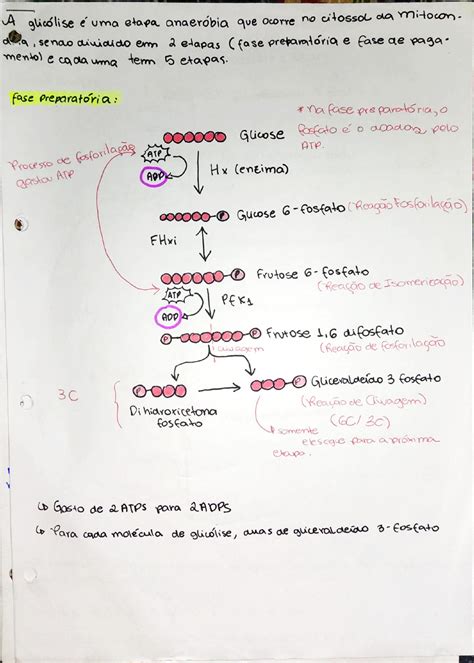 A glicólise é uma etapa anaeróbia que ocorre no citossol da mitocon-
dria, senao dividido em 2 etapas (fase preparatória e fase de paga-
mento) e cada uma tem 5 etapas.
fase preparatória:
* Na fase preparatória, o
fosfato é o doador pelo
ATP.
Processo de fosforilação
gasta ATP
Glicose
ATP
ADP
Hx (enzima)
P Glicose 6-fosfato (Reação Fosforilação)
FHxi
P Frutose 6-fosfato
(Reação de Isomerização)
ATP
ADP
PFK1
P P Frutose 1,6 difosfato
(Reação de fosforilação
clivagem
3C
P P Gliceraldeído 3 fosfato
Dihidroxicetona
fosfato
(Reação de Clivagem)
(6C/3C)
somente
ele segue para a próxima
etapa.
↳ Gasto de 2ATPS para 2ADPS
↳ Para cada molécula de glicólise, duas de gliceraldeído 3-fosfato